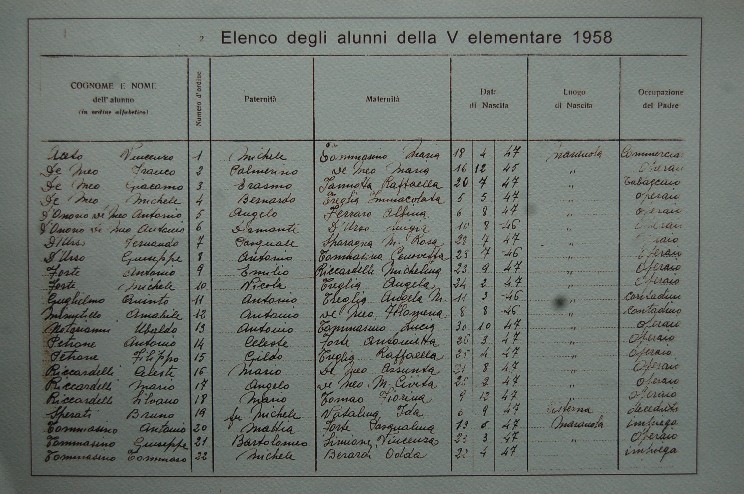 2 Elenco degli alunni della V elementare 1958
COGNOME E NOME dell'alunno (in ordine alfabetico) Numero d'ordine Paternità Maternità Data di Nascita Luogo di Nascita Occupazione del Padre
Vincenzo 1 Michele Tommasino Maria 18 4 47 Maranola
De Meo Franco 2 Palmerino De Meo Maria 16 12 45 " operaio
De Meo Giacomo 3 Erasmo Iannotta Raffaella 20 7 47 "
De Meo Michele 4 Bernardo Treglia Immacolata 5 5 47 " operaio
D'Onorio De Meo Antonio 5 Angelo Ferraro 6 8 47 " operaio
D'Onorio De Meo Antonio 6 D'Urso 10 8 -46 " operaio
D'Urso Fernando 7 Pasquale Sparagna M. Rosa 22 4 47 "
D'Urso Giuseppe 8 Antonio Tommasino 25 7 -46 " operaio
Forte Antonio 9 Emilio Riccardelli Michelina 23 9 47 " operaio
Forte Michele 10 Nicola Treglia Angela 24 2 47 " operaio
Guglielmo Quinto 11 Antonio Treglia Angela M. 11 3 -46 " contadino
12 Antonio De Meo 8 8 -46 " contadino
Notarianni Ubaldo 13 Antonio Tommasino Lucia 30 10 47 " operaio
Petrone Antonio 14 Celeste Forte Antonetta 26 3 47 " operaio
Petrone Filippo 15 Gildo Treglia Raffaella 25 4 47 " operaio
Riccardelli 16 Mario De Meo Assunta 21 8 47 " operaio
Riccardelli Mario 17 Angelo De Meo M. Civita 25 2 47 " operaio
Riccardelli Silvano 18 Mario Tomao Fiorina 9 12 47 " operaio
Sperati Bruno 19 fu Michele Ida 6 9 47 Cisterna
Tommasino Antonio 20 Mattia Forte Pasqualina 13 6 47 Maranola
Tommasino Giuseppe 21 Bartolomeo Simione Vincenza 22 3 47 " operaio
Tommasino Tommaso 22 Michele Berardi Odda 22 4 47 "